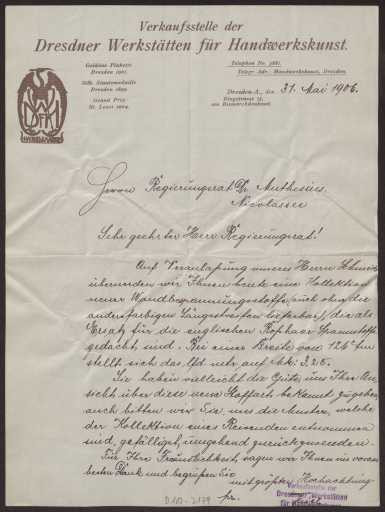 Verkaufsstelle der
Dresdner Werkstätten für Handwerkskunst.
Goldene Plakette
Dresden
Silb. Staatsmedaille
Dresden
Grand Prix
St. Louis 1904.
Telephon No.
Telegr. Adr. Handwerkskunst, Dresden.
Dresden-A., den 31. Mai 1906.
Ringstrasse 15,
am Bismarckdenkmal.
DWFHK
HANDWERKSKUNST
Herrn Regierungsrat Dr. Muthesius.
Nicolassee
Sehr geehrter Herr Regierungsrat!
Auf Veranlaßung unseres Herrn Schmidt
übersenden wir Ihnen heute eine Kollektion
neuer Wandbespannungsstoffe, auch ohne die
andersfarbigen Längsstreifen lieferbar, die als
Ersatz für die englischen Roßhaar
gedacht sind. Bei einer Breite von 126 cm
stellt sich das lfd. mtr. auf Mk: 3.25.
Sie haben vielleicht die Güte, uns Ihre An-
sicht über diese neue Stoffart bekannt zu geben,
auch bitten wir Sie, uns die Muster, welche
der Kollektion eines Reisenden entnommen
sind, gefälligst, umgehend zurückzusenden.
Für Ihre Freundlichkeit sagen wir Ihnen im voraus
besten Dank und begrüßen Sie
mit größter Hochachtung
Verkaufsstelle der
Dresdner Werkstätten
pr.
D 102-2179